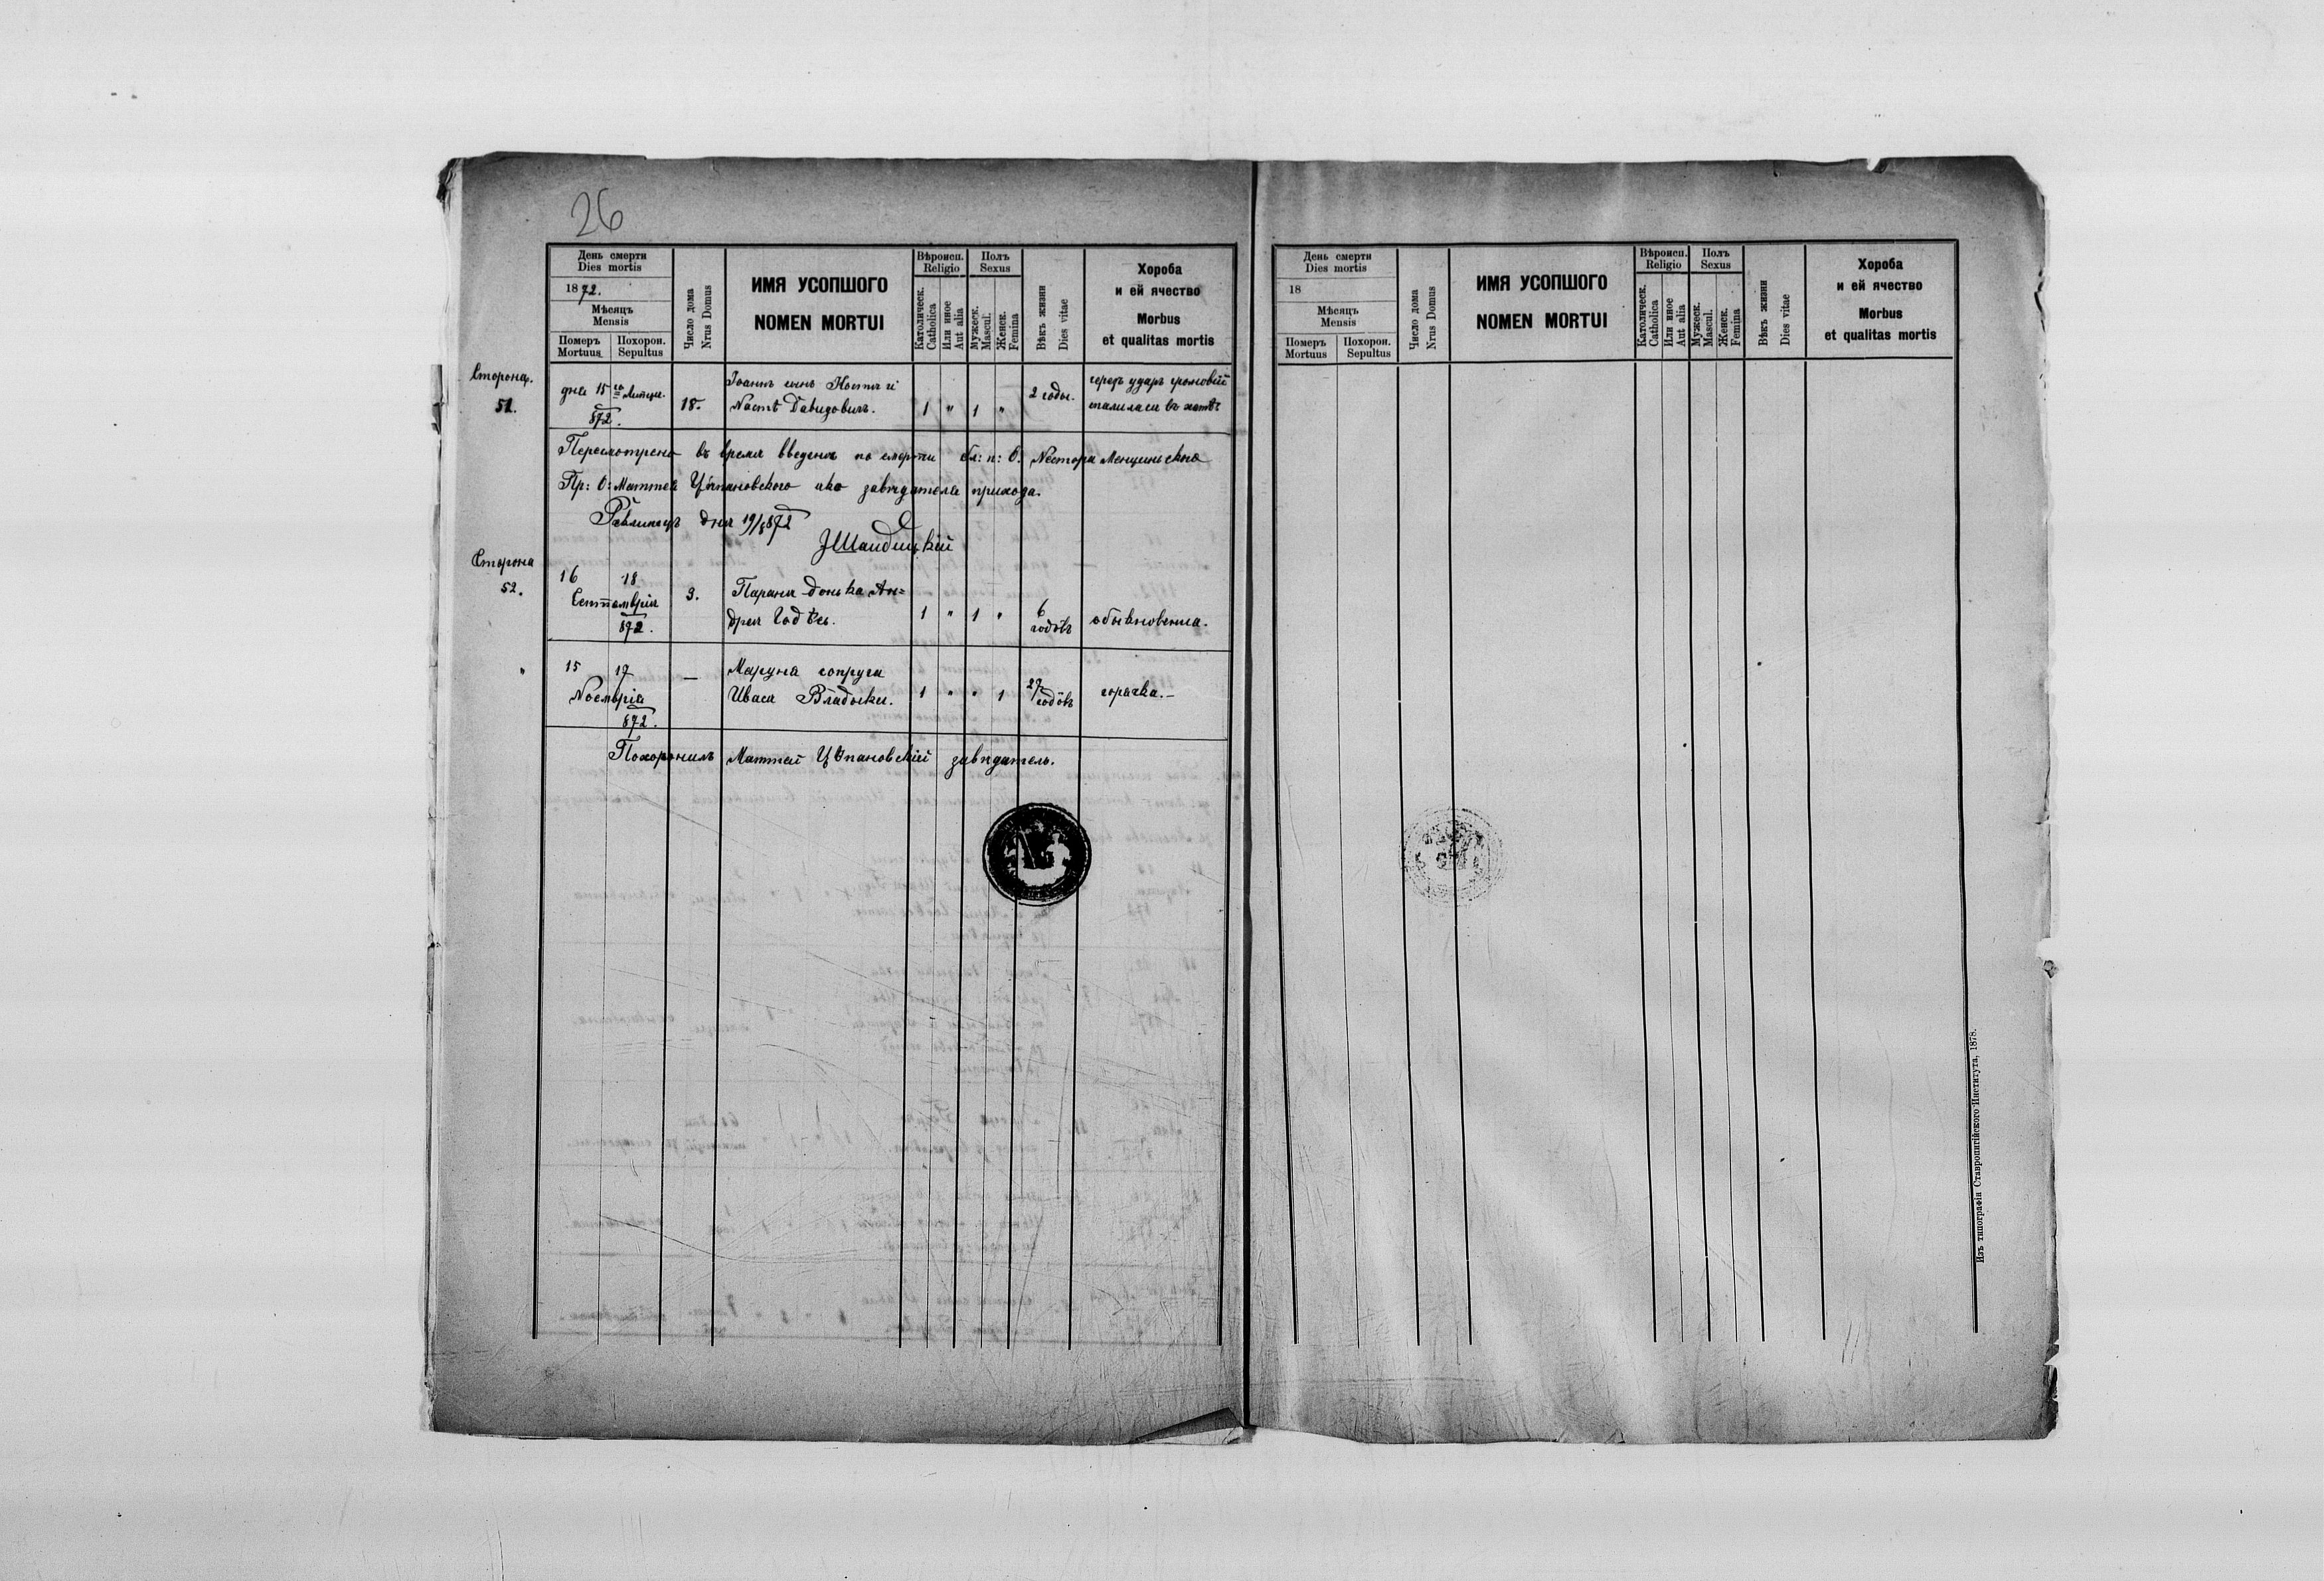 26
День смерти
Dies mortis
1872.
Мѣсяцъ
Mensis
Померъ
Mortuus
Похорон.
Sepultus
Число дома
Nrus Domus
ИМЯ УСОПШОГО
NOMEN MORTUI
Вѣроисп.
Religio
Католическ.
Catholica
Или иное
Aut alia
Полъ
Sexus
Мужеск.
Mascul.
Женск.
Femina
Вѣкъ жизни
Dies vitae
Хороба
и ей ячество
Morbus
et qualitas mortis
Сторона.
51.
дня 15
872.
18.
Іоаннъ сынъ Костя и
Насті Давидовичъ.
1 " 1 "
2 годы.
черезъ ударъ громовый
спалилася въ хатѣ
Пересмотрено въ время введенія по смерти бл: п: О. Нестора
Пр: О: Маттея Цѣпановского яко завѣдателя прихода.
дня 19/8 872
Сторона
52.
16 18
Септемврія
872.
3.
Параня донька Ан=
дрея
1 " 1 "
6
годѡвъ
обыкновенна.
"
15 17
Ноемврія
872.
—
Маруня сопруга
Иваса Владыки.
1 " " 1
27
годѡвъ
горячка.–
Похоронилъ Маттей Цѣпановскій завѣдатель.
День смерти
Dies mortis
18
Мѣсяцъ
Mensis
Померъ
Mortuus
Похорон.
Sepultus
Число дома
Nrus Domus
ИМЯ УСОПШОГО
NOMEN MORTUI
Вѣроисп.
Religio
Католическ.
Catholica
Или иное
Aut alia
Полъ
Sexus
Мужеск.
Mascul.
Женск.
Femina
Вѣкъ жизни
Dies vitae
Хороба
и ей ячество
Morbus
et qualitas mortis
Изъ типографіи Ставропигійского Института, 1878.